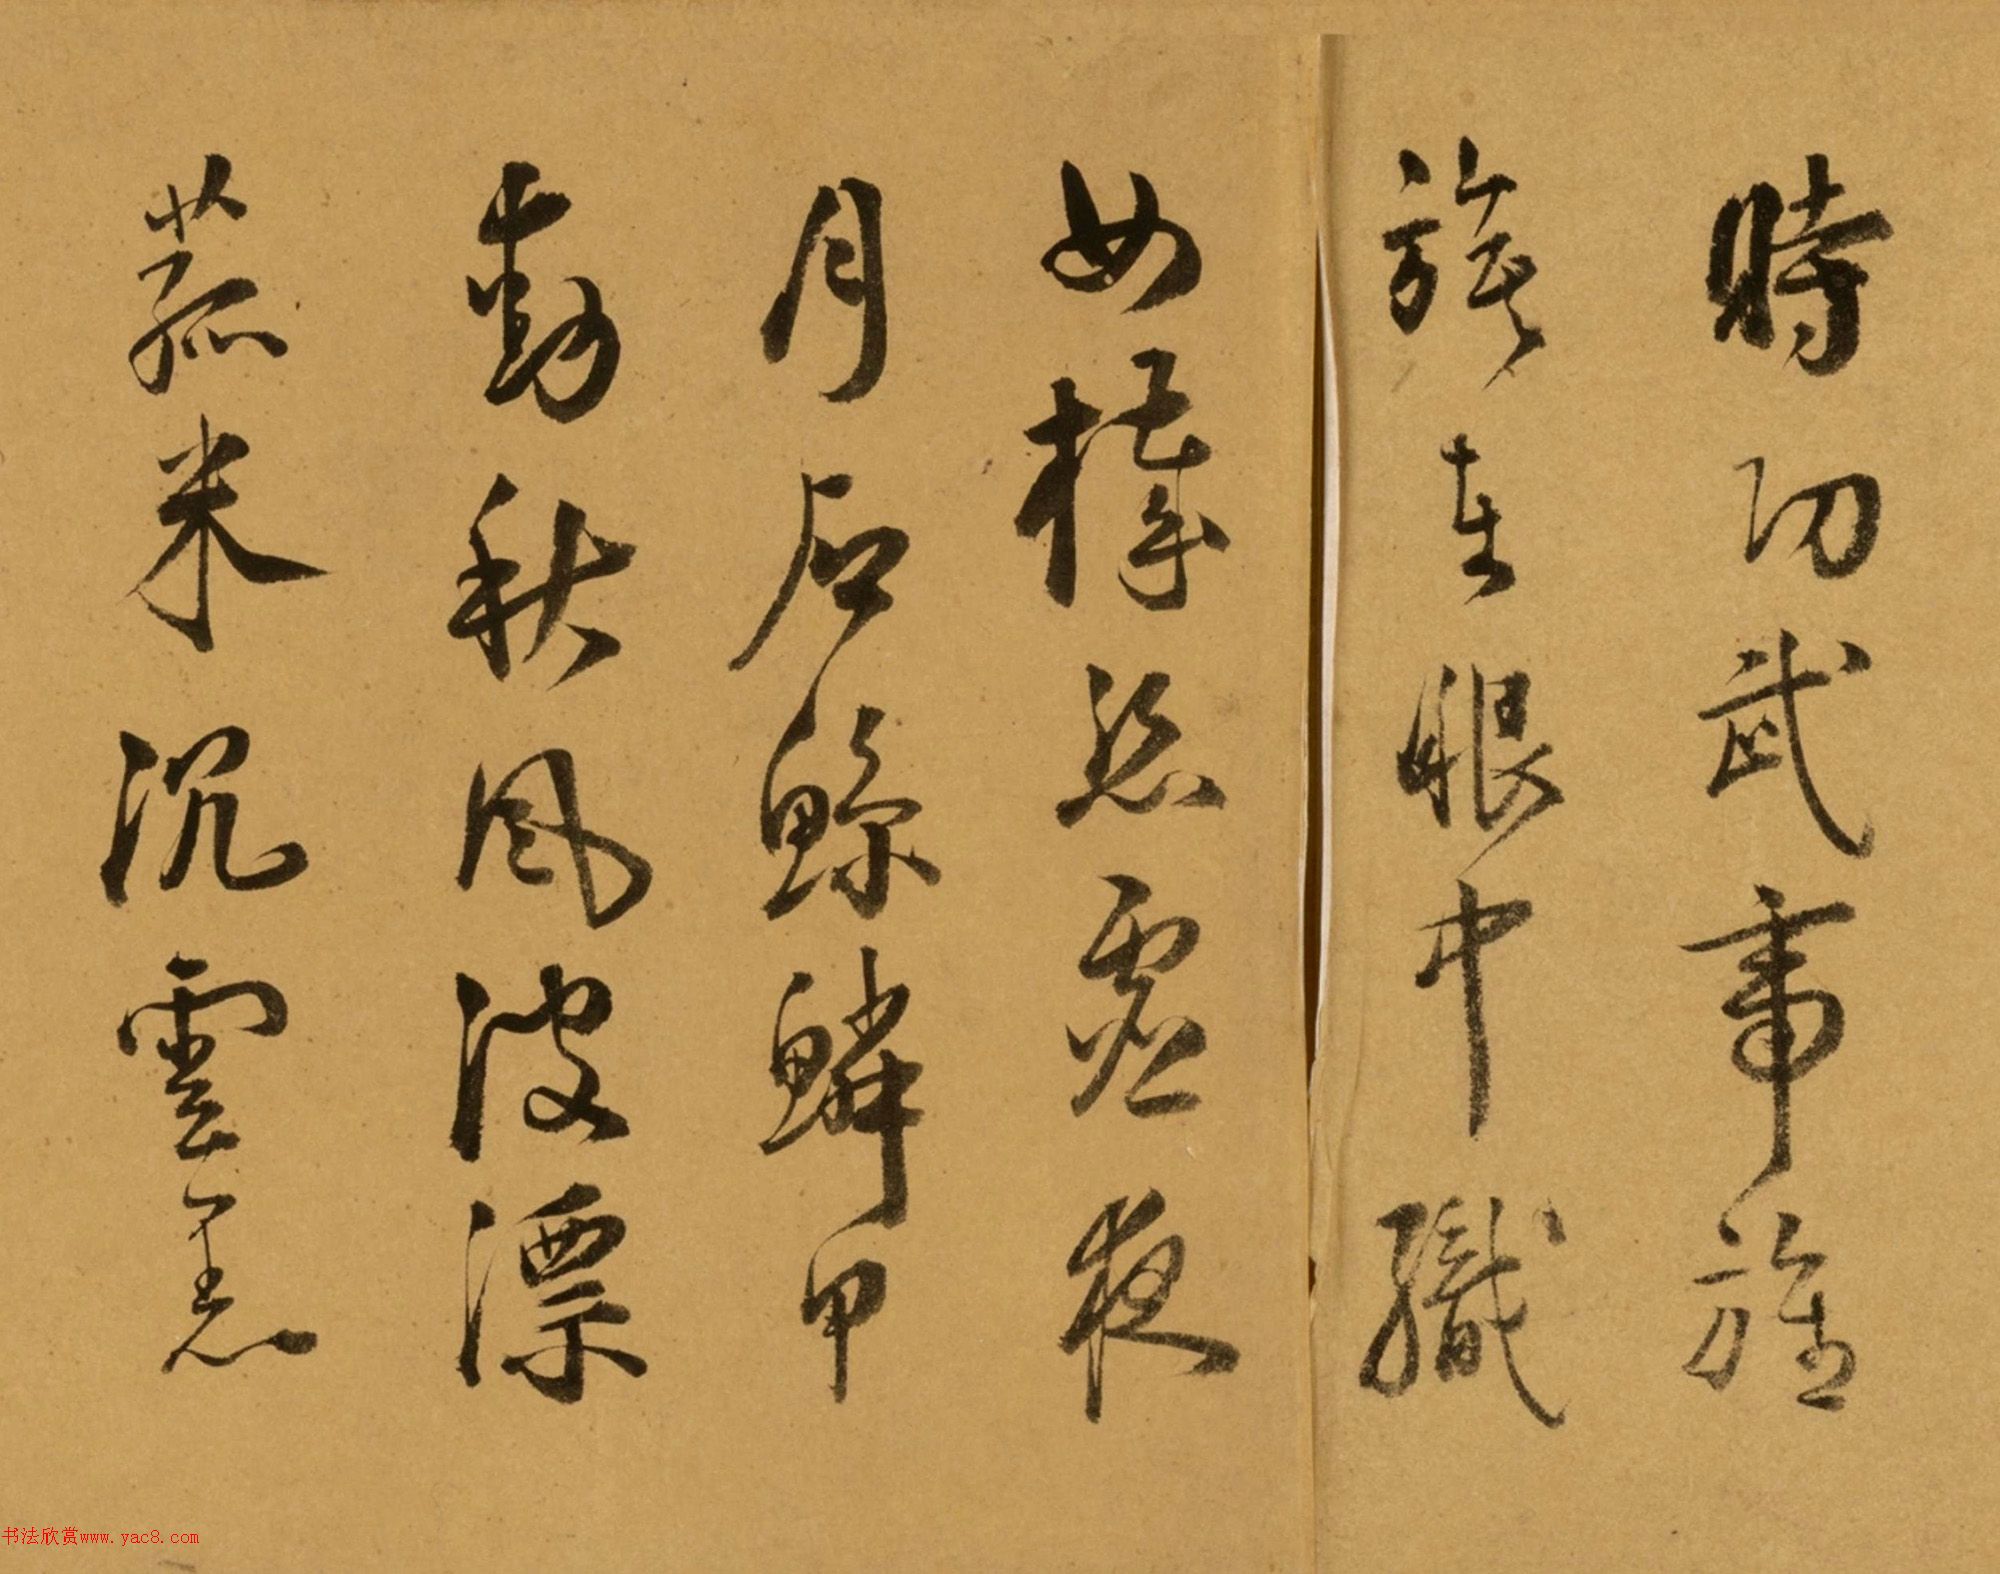 時功武帝旌
旗在眼中織
女機絲虛夜
月石鯨鱗甲
動秋風波漂
菰米沉雲黑
书法欣赏www.yac8.com